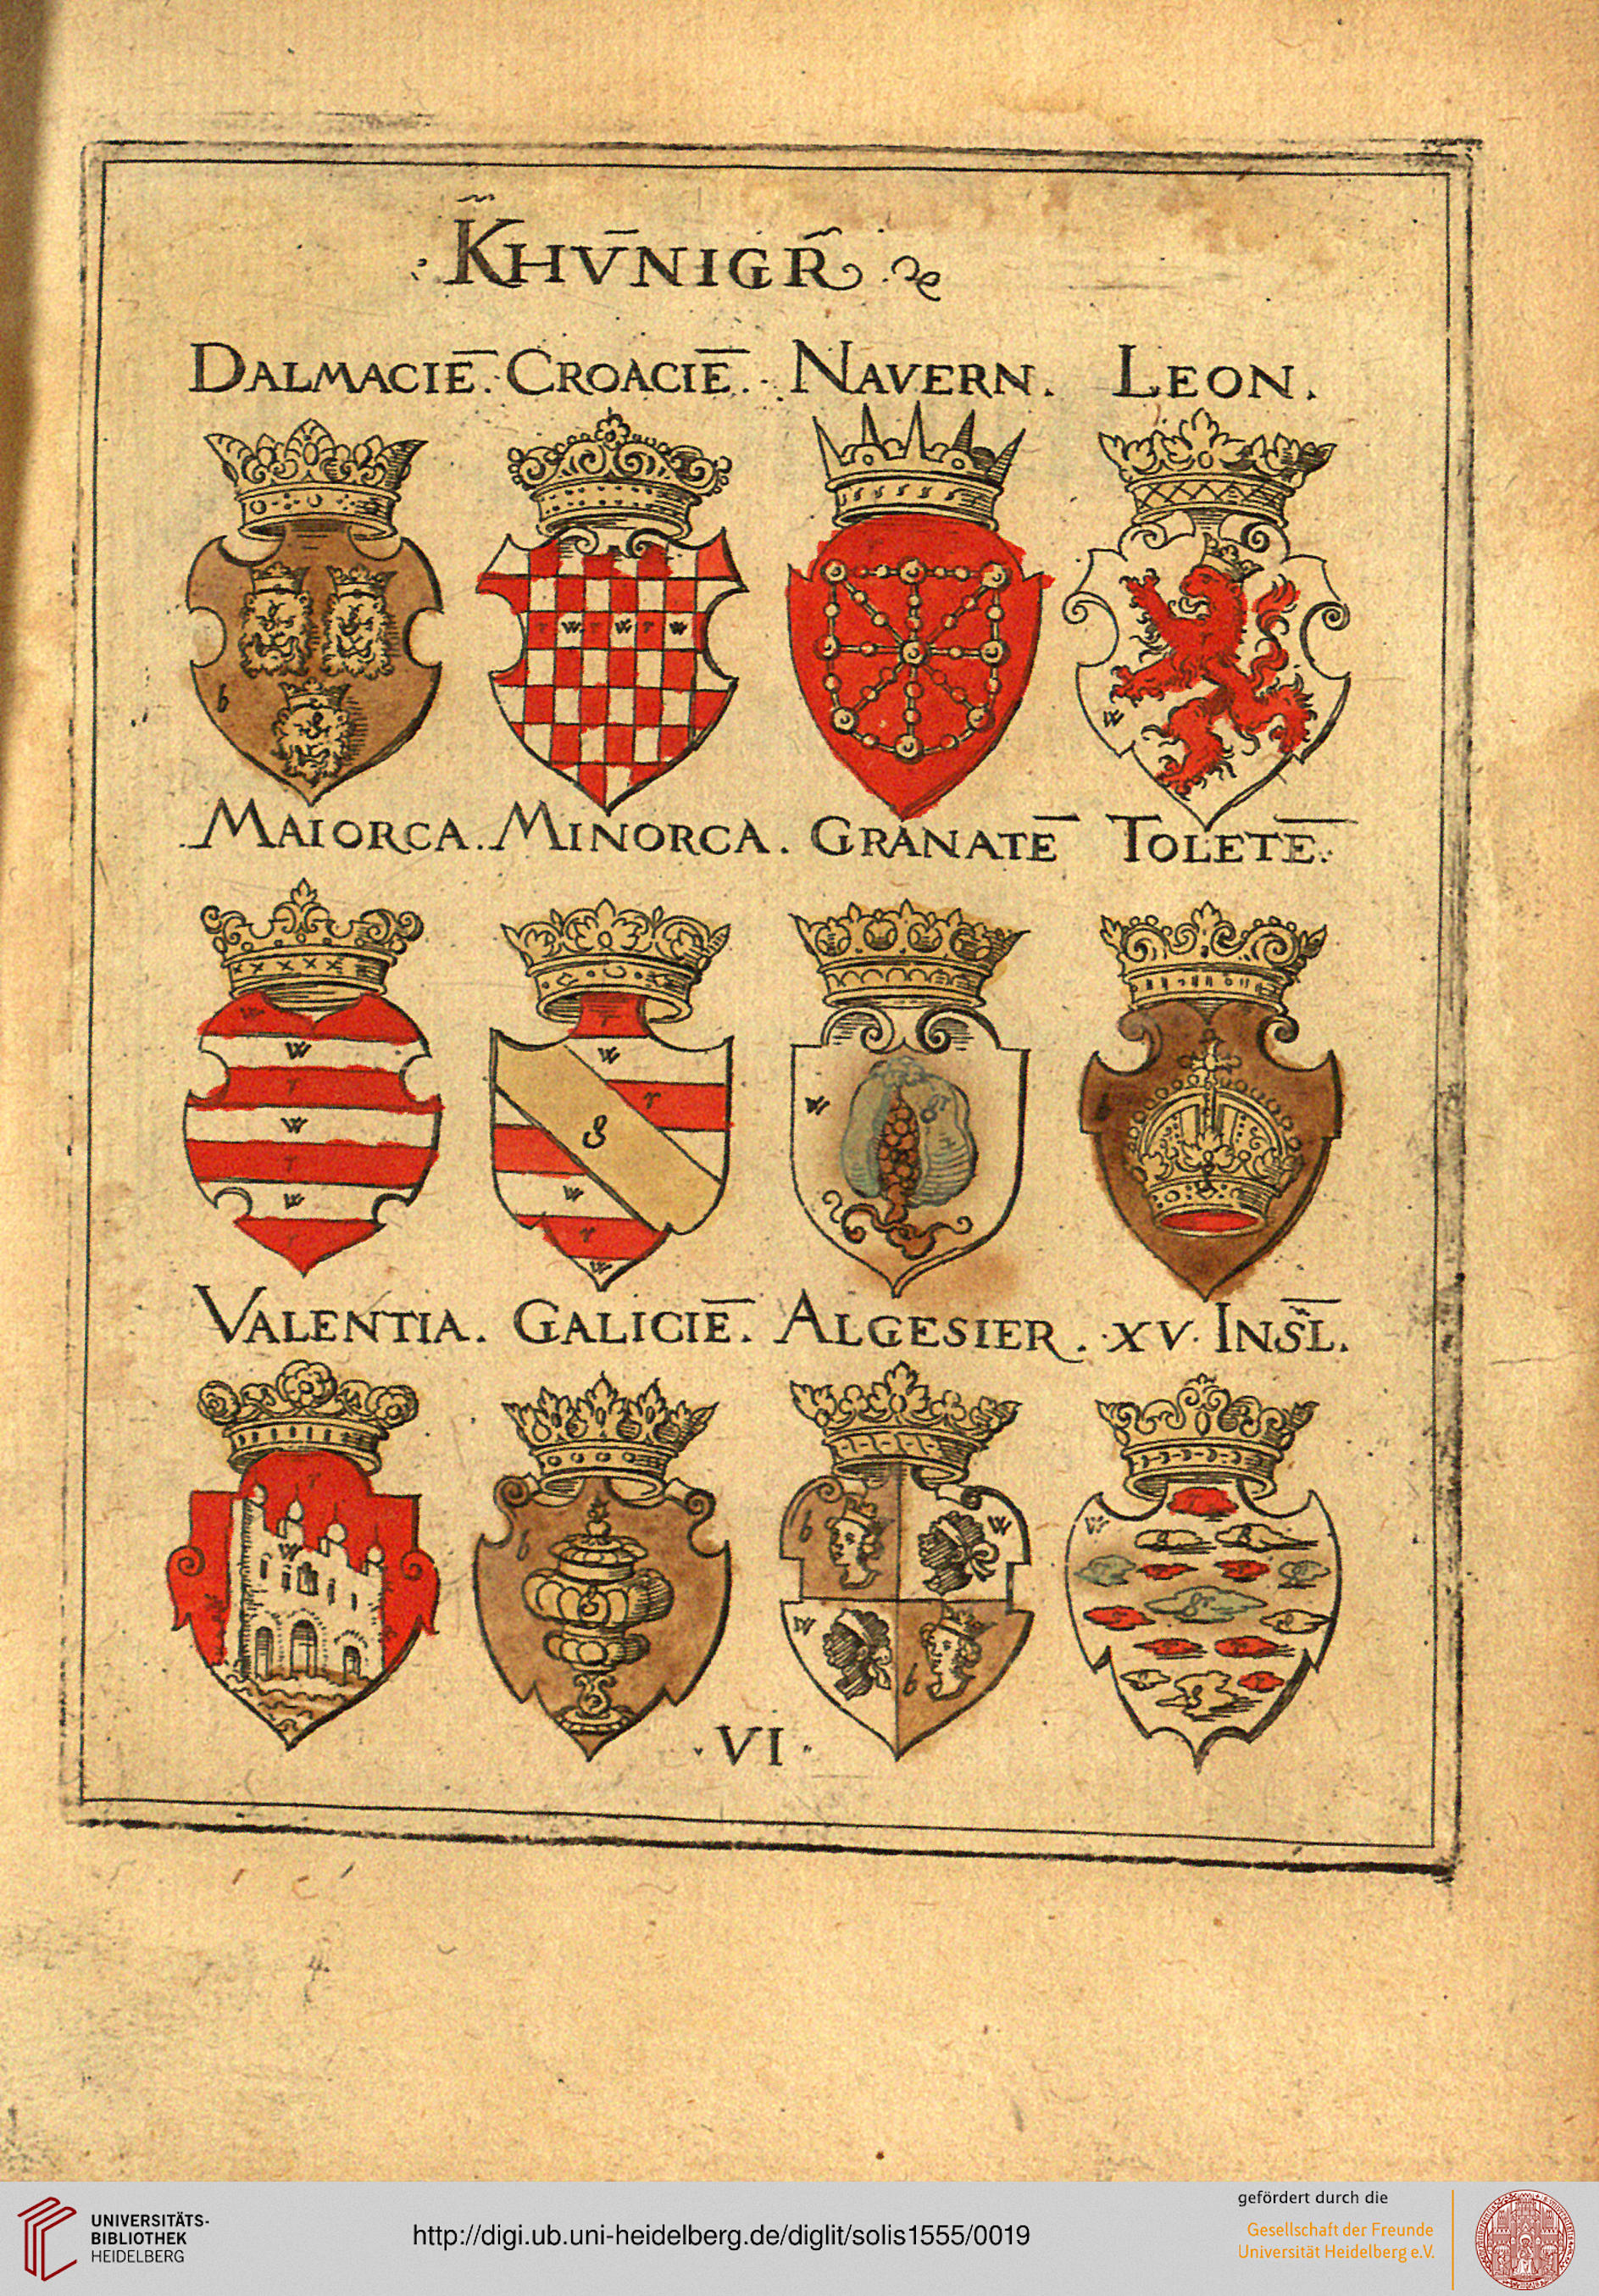 : KHVN̄IGR̃ .
DALMACIĒ. CROACIĒ. NAVERN. LEON.
b
r w r w r w
g
w
.MAIORCA. MINORCA. GRANATĒ TOLETĒ.
w r
w w
r r gr
w w g
r w
w r
r w
VALENTIA. GALICIĒ. ALGESIER. XV. INS̄L.
r
w b b w w
g w b gr
r r
g
·VI·
UNIVERSITÄTS-
BIBLIOTHEK
HEIDELBERG
http://digi.ub.uni-heidelberg.de/diglit/solis1555/0019
gefördert durch die
Gesellschaft der Freunde
Universität Heidelberg e.V.